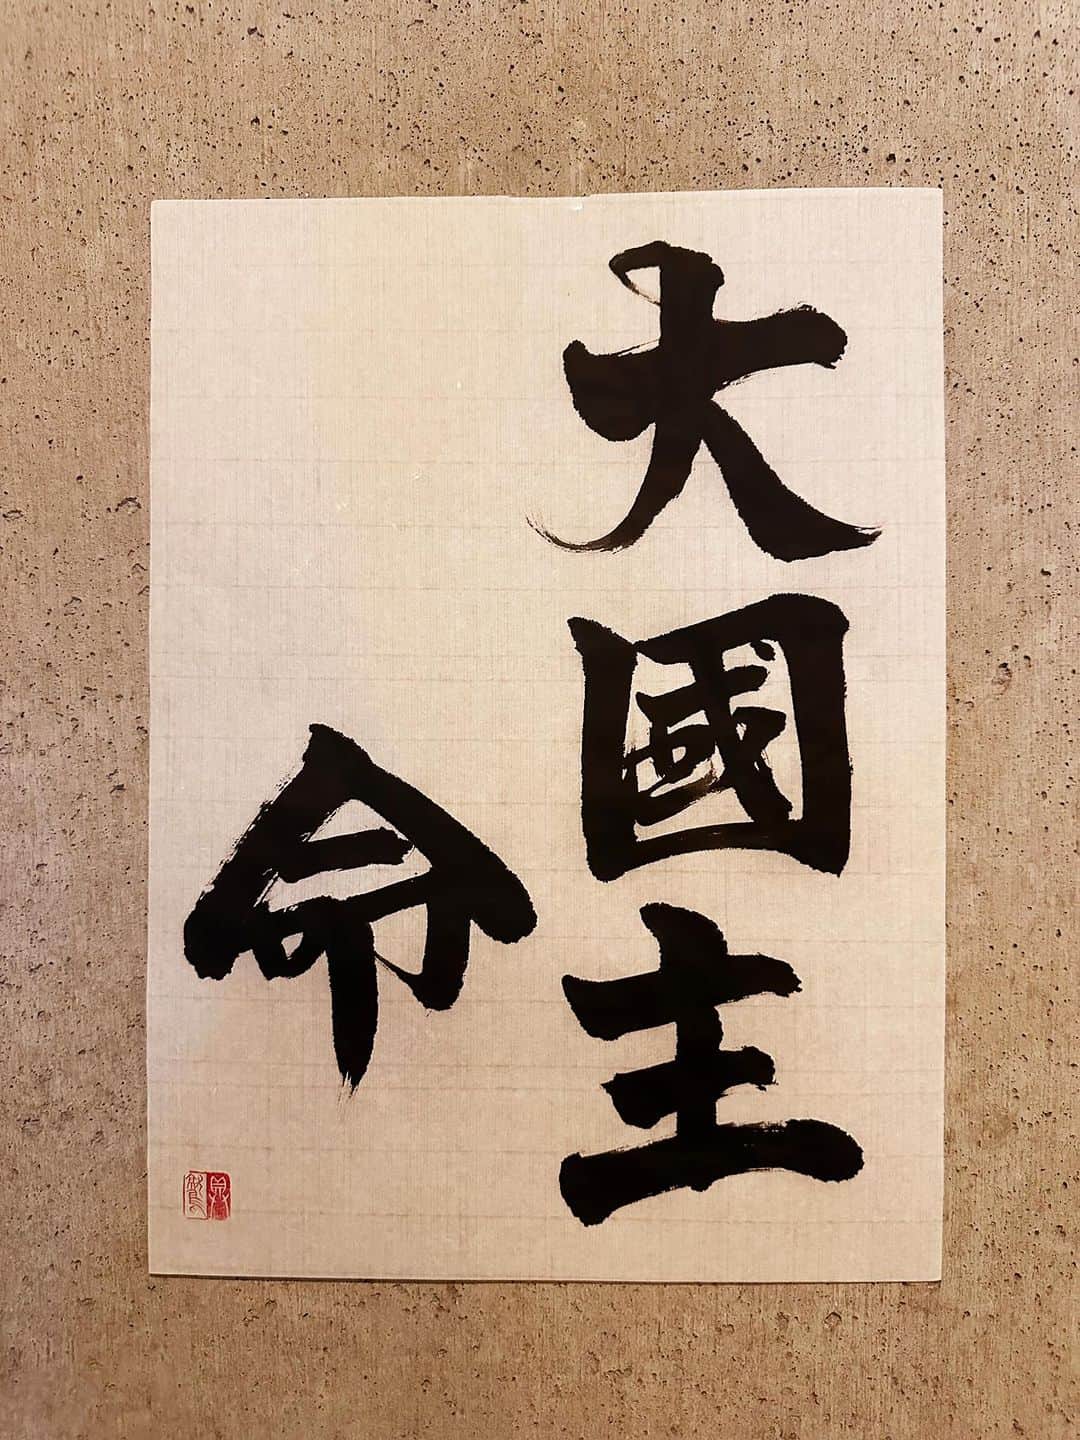 大國主
命